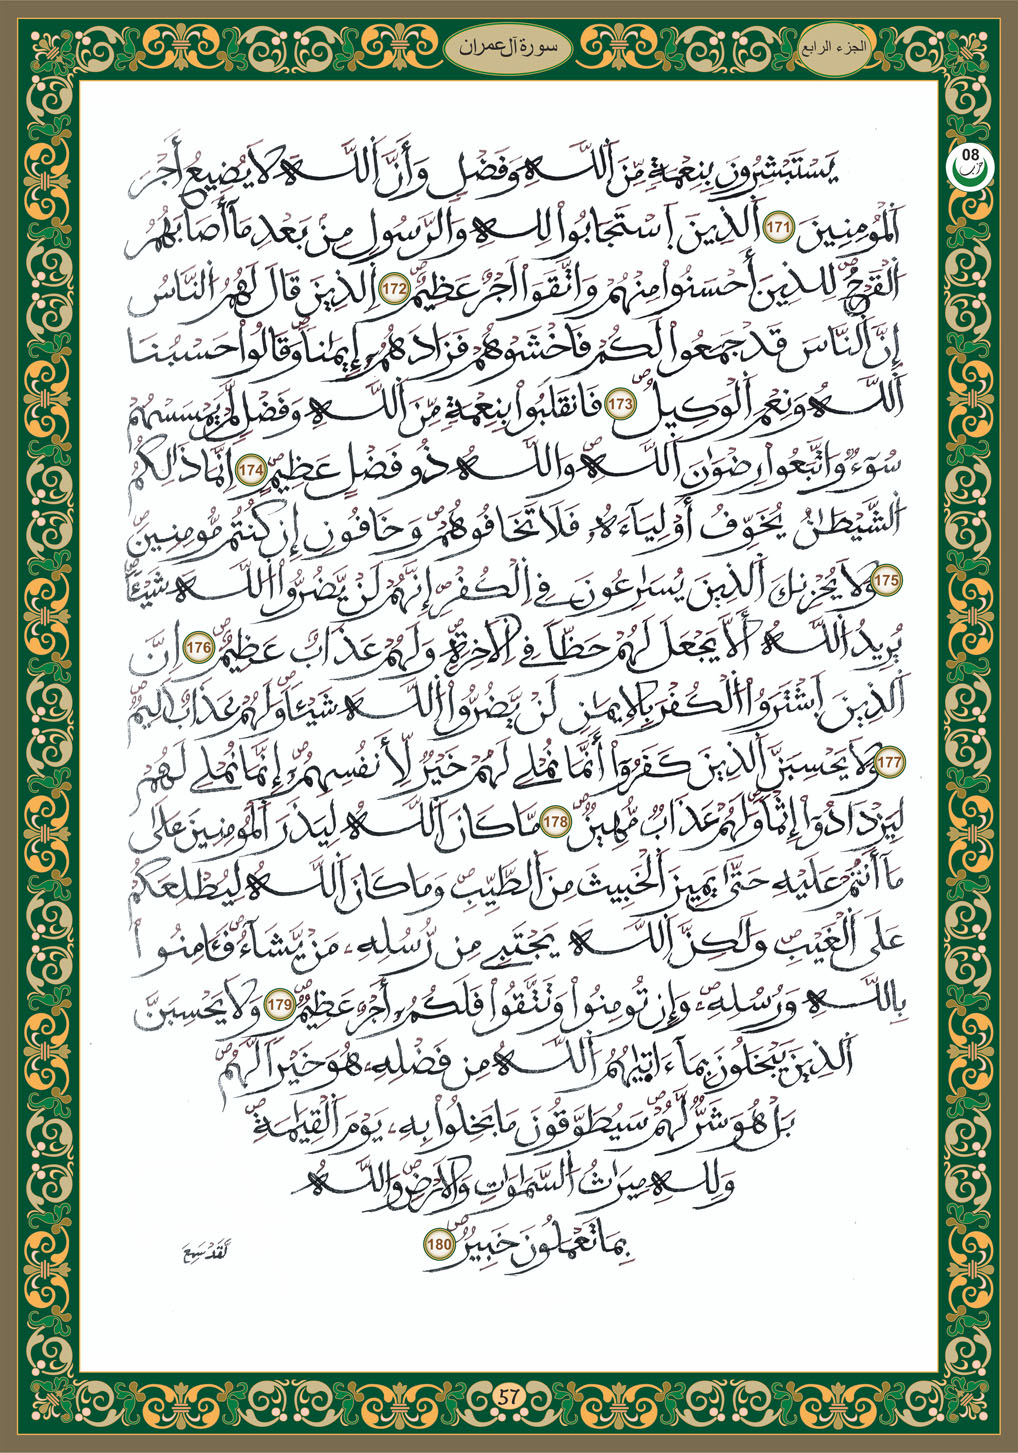 الجزء الرابع
سورة آل عمران
08
حزب
يَسْتَبْشِرُونَ بِنِعْمَةٖ مِّنَ اَ۬للَّهِ وَفَضْلٖ وَأَنَّ اَ۬للَّهَ لَا يُضِيعُ أَجْرَ
اَ۬لْمُومِنِينَ 171 اَ۬لذِينَ اَ۪سْتَجَابُواْ لِلهِ وَالرَّسُولِ مِنۢ بَعْدِ مَآ أَصَابَهُمُ
اُ۬لْقَرْحُۖ لِلذِينَ أَحْسَنُواْ مِنْهُمْ وَاتَّقَوَاْ اَجْرٌ عَظِيمٌۖ 172 اِ۬لذِينَ قَالَ لَهُمُ اُ۬لنَّاسُ
إِنَّ اَ۬لنَّاسَ قَدْ جَمَعُواْ لَكُمْ فَاخْشَوْهُمْ فَزَادَهُمُۥٓ إِيمَٰناٗۖ وَقَالُواْ حَسْبُنَا
اَ۬للَّهُ وَنِعْمَ اَ۬لْوَكِيلُۖ 173 فَانقَلَبُواْ بِنِعْمَةٖ مِّنَ اَ۬للَّهِ وَفَضْلٖ لَّمْ يَمْسَسْهُمْ
سُوٓءٞ وَاتَّبَعُواْ رِضْوَٰنَ اَ۬للَّهِۖ وَاللَّهُ ذُو فَضْلٍ عَظِيمٍۖ 174 اِنَّمَا ذَٰلِكُمُ
اُ۬لشَّيْطَٰنُ يُخَوِّفُ أَوْلِيَآءَهُۥ فَلَا تَخَافُوهُمْۖ وَخَافُونِ إِن كُنتُم مُّومِنِينَۖ
175 وَلَا يُحْزِنكَ اَ۬لذِينَ يُسَٰرِعُونَ فِے اِ۬لْكُفْرِۖ إِنَّهُمْ لَنْ يَّضُرُّواْ اُ۬للَّهَ شَيْـٔاٗۖ
يُرِيدُ اُ۬للَّهُ أَلَّا يَجْعَلَ لَهُمْ حَظّاٗ فِے اِ۬لَاخِرَةِۖ وَلَهُمْ عَذَابٌ عَظِيمٌۖ 176 اِنَّ
اَ۬لذِينَ اَ۪شْتَرَوُاْ اُ۬لْكُفْرَ بِالِايمَٰنِ لَنْ يَّضُرُّواْ اُ۬للَّهَ شَيْـٔاٗۖ وَلَهُمْ عَذَابٌ اَلِيمٞۖ
177 وَلَا يَحْسِبَنَّ اَ۬لذِينَ كَفَرُوٓاْ أَنَّمَا نُمْلِے لَهُمْ خَيْرٞ لِّأَنفُسِهِمُۥٓۖ إِنَّمَا نُمْلِے لَهُمْ
لِيَزْدَادُوٓاْ إِثْماٗۖ وَلَهُمْ عَذَابٞ مُّهِينٞۖ 178 مَّا كَانَ اَ۬للَّهُ لِيَذَرَ اَ۬لْمُومِنِينَ عَلَىٰ
مَآ أَنتُمْ عَلَيْهِ حَتَّىٰ يَمِيزَ اَ۬لْخَبِيثَ مِنَ اَ۬لطَّيِّبِۖ وَمَا كَانَ اَ۬للَّهُ لِيُطْلِعَكُمْ
عَلَى اَ۬لْغَيْبِۖ وَلَٰكِنَّ اَ۬للَّهَ يَجْتَبِے مِن رُّسُلِهِۦ مَنْ يَّشَآءُۖ فَـَٔامِنُواْ
بِاللَّهِ وَرُسُلِهِۦۖ وَإِن تُومِنُواْ وَتَتَّقُواْ فَلَكُمُۥٓ أَجْرٌ عَظِيمٞۖ 179 وَلَا يَحْسِبَنَّ
اَ۬لذِينَ يَبْخَلُونَ بِمَآ ءَات۪يٰهُمُ اُ۬للَّهُ مِن فَضْلِهِۦ هُوَ خَيْراٗ لَّهُمۖ
بَلْ هُوَ شَرّٞ لَّهُمْۖ سَيُطَوَّقُونَ مَا بَخِلُواْ بِهِۦ يَوْمَ اَ۬لْقِيَٰمَةِۖ
وَلِلهِ مِيرَٰثُ اُ۬لسَّمَٰوَٰتِ وَالَارْضِۖ وَاللَّهُ
بِمَا تَعْمَلُونَ خَبِيرٞۖ 180
لَّقَدْ سَمِعَ
57